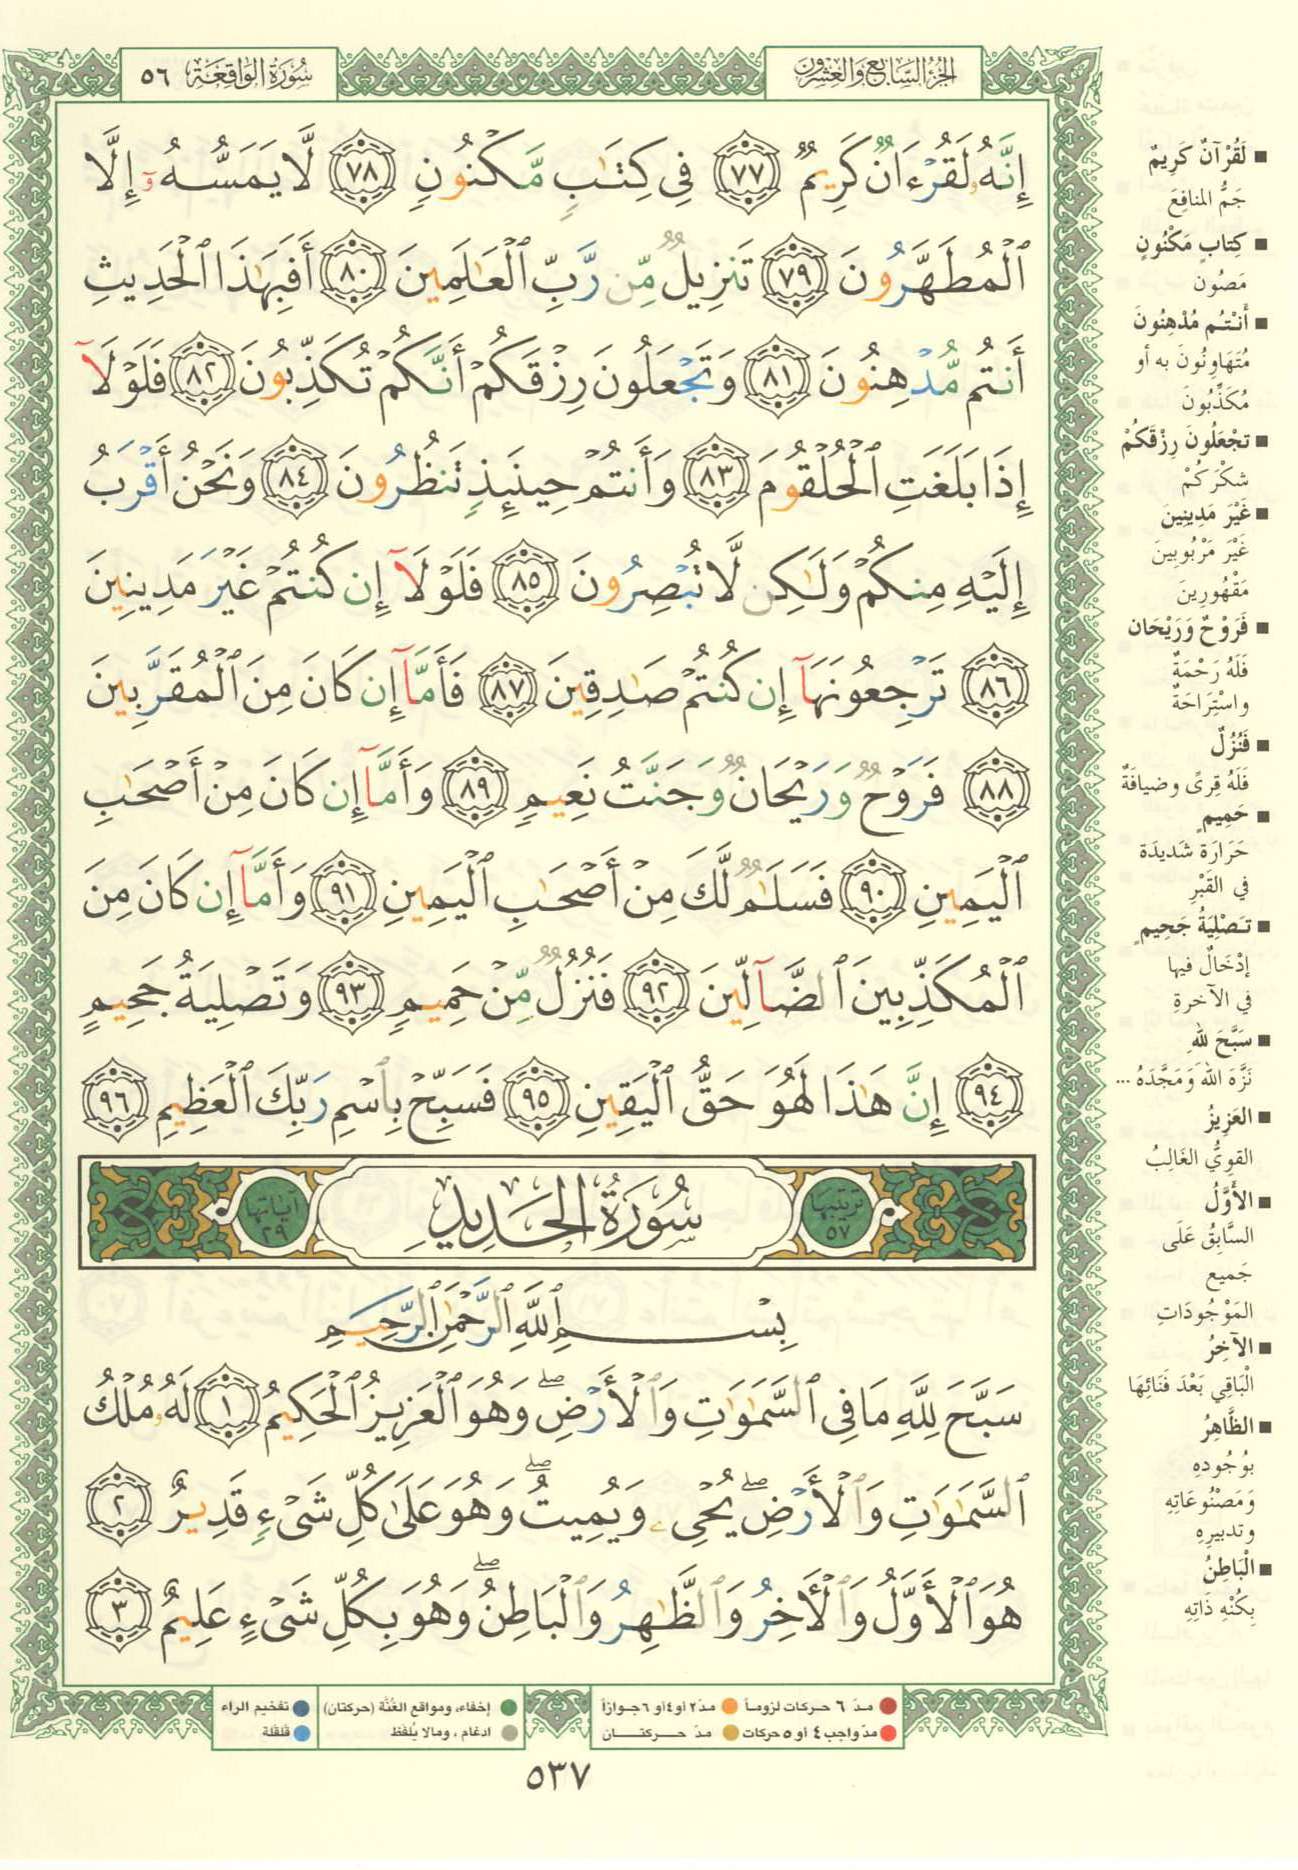 الجزء السابع والعشرون
سورة الواقعة ٥٦
إِنَّهُۥ لَقُرْءَانٌ كَرِيمٌ ٧٧ فِى كِتَٰبٍ مَّكْنُونٍ ٧٨ لَّا يَمَسُّهُۥٓ إِلَّا
ٱلْمُطَهَّرُونَ ٧٩ تَنزِيلٌ مِّن رَّبِّ ٱلْعَٰلَمِينَ ٨٠ أَفَبِهَٰذَا ٱلْحَدِيثِ
أَنتُم مُّدْهِنُونَ ٨١ وَتَجْعَلُونَ رِزْقَكُمْ أَنَّكُمْ تُكَذِّبُونَ ٨٢ فَلَوْلَآ
إِذَا بَلَغَتِ ٱلْحُلْقُومَ ٨٣ وَأَنتُمْ حِينَئِذٍ تَنظُرُونَ ٨٤ وَنَحْنُ أَقْرَبُ
إِلَيْهِ مِنكُمْ وَلَٰكِن لَّا تُبْصِرُونَ ٨٥ فَلَوْلَآ إِن كُنتُمْ غَيْرَ مَدِينِينَ
٨٦ تَرْجِعُونَهَآ إِن كُنتُمْ صَٰدِقِينَ ٨٧ فَأَمَّآ إِن كَانَ مِنَ ٱلْمُقَرَّبِينَ
٨٨ فَرَوْحٌ وَرَيْحَانٌ وَجَنَّتُ نَعِيمٍ ٨٩ وَأَمَّآ إِن كَانَ مِنْ أَصْحَٰبِ
ٱلْيَمِينِ ٩٠ فَسَلَٰمٌ لَّكَ مِنْ أَصْحَٰبِ ٱلْيَمِينِ ٩١ وَأَمَّآ إِن كَانَ مِنَ
ٱلْمُكَذِّبِينَ ٱلضَّآلِّينَ ٩٢ فَنُزُلٌ مِّنْ حَمِيمٍ ٩٣ وَتَصْلِيَةُ جَحِيمٍ
٩٤ إِنَّ هَٰذَا لَهُوَ حَقُّ ٱلْيَقِينِ ٩٥ فَسَبِّحْ بِٱسْمِ رَبِّكَ ٱلْعَظِيمِ ٩٦
ترتيبها ٥٧ سُورَةُ الحَدِيدِ آياتها ٢٩
بِسْمِ ٱللَّهِ ٱلرَّحْمَٰنِ ٱلرَّحِيمِ
سَبَّحَ لِلَّهِ مَا فِى ٱلسَّمَٰوَٰتِ وَٱلْأَرْضِ ۖ وَهُوَ ٱلْعَزِيزُ ٱلْحَكِيمُ ١ لَهُۥ مُلْكُ
ٱلسَّمَٰوَٰتِ وَٱلْأَرْضِ ۖ يُحْىِۦ وَيُمِيتُ ۖ وَهُوَ عَلَىٰ كُلِّ شَىْءٍ قَدِيرٌ ٢
هُوَ ٱلْأَوَّلُ وَٱلْءَاخِرُ وَٱلظَّٰهِرُ وَٱلْبَاطِنُ ۖ وَهُوَ بِكُلِّ شَىْءٍ عَلِيمٌ ٣
لَقُرْآنٌ كَرِيمٌ
جَمُّ المنافِعَ
كِتابٍ مَكْنُونٍ
مَصُون
أَنْتُم مُدْهِنُونَ
مُتَهَاوِنُونَ به أو
مُكَذِّبُونَ
تجْعَلُونَ رِزْقَكُمْ
شكْرَكُمْ
غَيْرَ مَدِينِينَ
غَيْرَ مَرْبُوبِينَ
مَقْهُورِينَ
فَرَوْحٌ وَرَيْحَان
فَلَهُ رَحْمَةٌ
واسْتِرَاحَةٌ
فَنُزُلٌ
فَلَهُ قِرىً وضيافَةٌ
حَمِيمٍ
حَرَارَة شَديدَة
في القَبْرِ
تَصْلِيَةُ جَحِيمٍ
إدْخَالٌ فيها
في الآخرةِ
سَبَّحَ للهِ
نَزَّهَ اللهَ وَمَجَّدَهُ ...
العَزِيزُ
القويُّ الغَالِبُ
الأَوَّلُ
السَّابِقُ عَلَى
جَميع
المَوْجُودَاتِ
الآخِرُ
الْبَاقِي بَعْدَ فَنَائِهَا
الظَّاهِرُ
بوُجُودِهِ
وَمَصْنُوعَاتِهِ
وتدبيرِهِ
الْبَاطِنُ
بِكُنْهِ ذَاتِهِ
مدّ ٦ حركات لزوماً مدّ ٢ أو ٤ أو ٦ جوازاً
مدّ واجب ٤ أو ٥ حركات مدّ حركتان
إخفاء، ومواقع الغُنَّة (حركتان) تفخيم الراء
ادغام ، ومالا يُلفظ قلقلة
٥٣٧